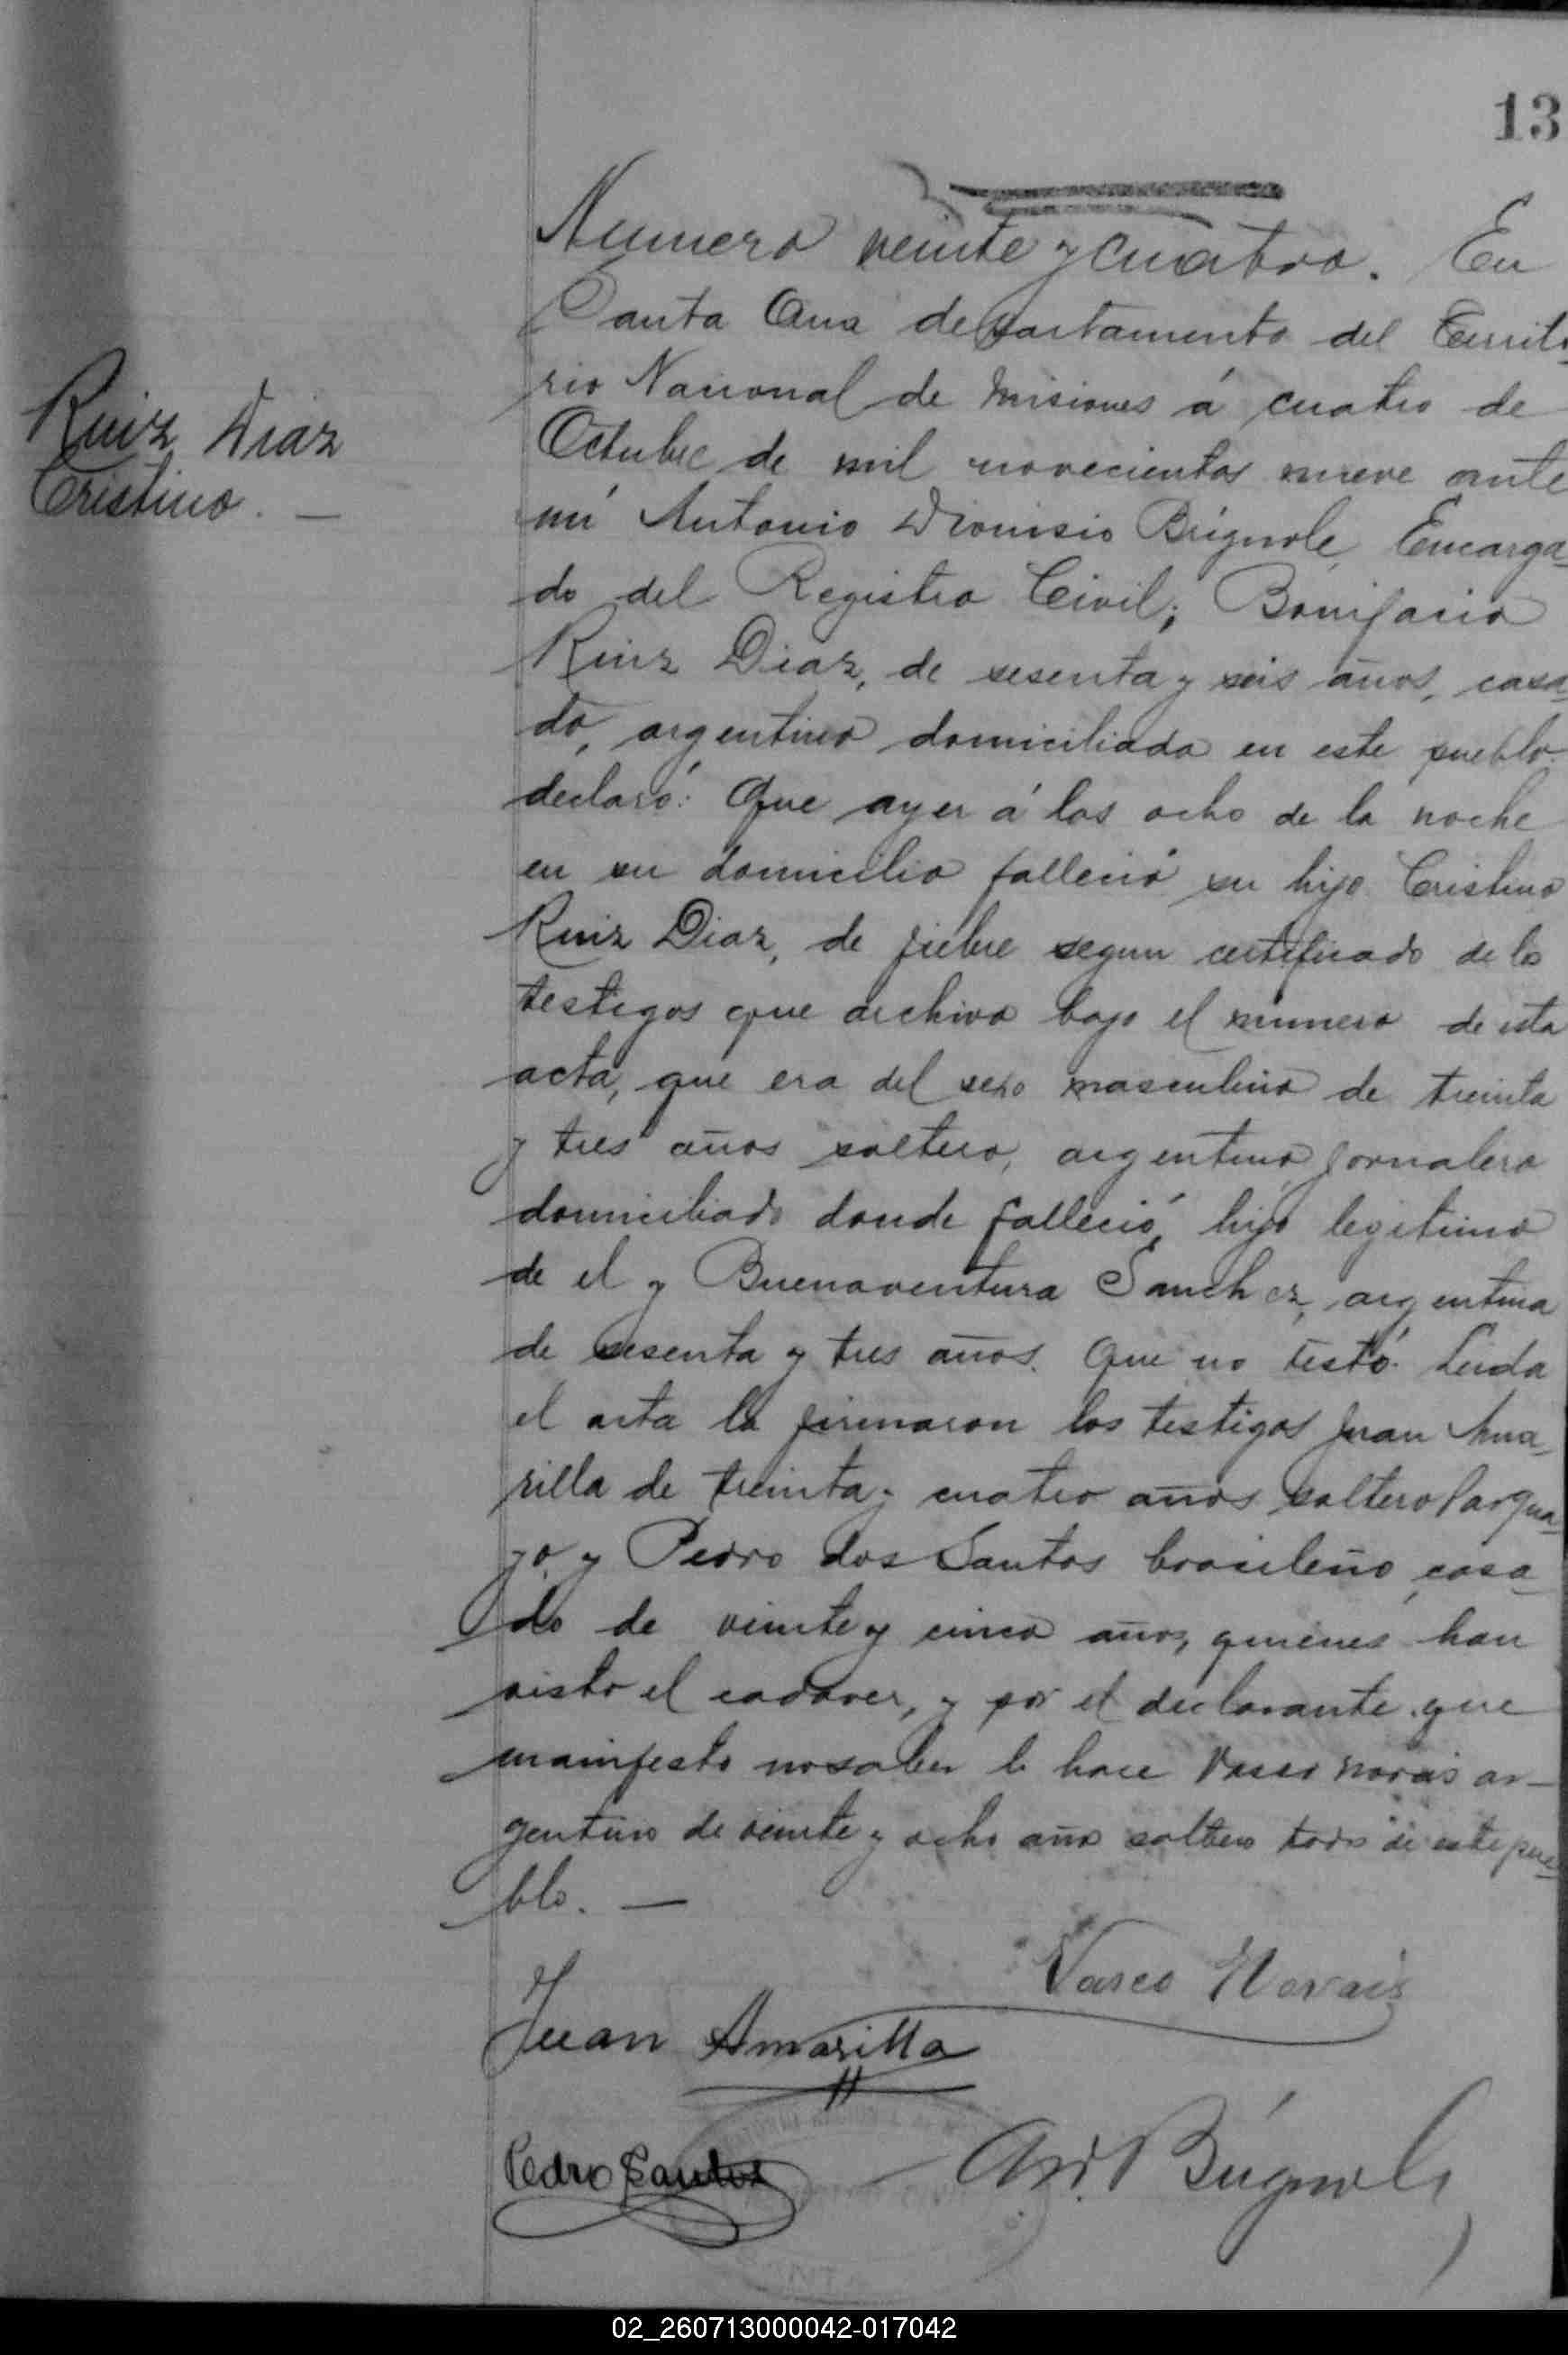 13
Numero veinte y cuatro. En
Santa Ana departamento del Territo
rio Nacional de Misiones á cuatro de
Ruiz Diaz
Cristino. —
Octubre de mil novecientos nueve ante
mi Antonio Dionisio Brignole, Encarga-
do del Registro Civil; Bonifacio
Ruiz Diaz, de sesenta y seis años, casa-
do, argentino domiciliado en este pueblo
declaró: Que ayer á las ocho de la noche
en su domicilio falleció su hijo Cristino
Ruiz Diaz, de fiebre segun certificado de los
testigos que archivo bajo el numero de esta
acta, que era del sexo masculino de treinta
y tres años soltero, argentino, jornalero
domiciliado donde falleció, hijo legitimo
de el y Buenaventura Sanchez, argentina
de sesenta y tres años. Que no testó. Leida
el acta la firmaron los testigos Juan Ama-
rilla de treinta y cuatro años soltero Pargua-
yo, y Pedro dos Santos brasileño, casa-
do de veinte y cinco años, quienes han
visto el cadaver, y por el declarante que
manifesto no saber lo hace Vasco Morais ar-
gentino de veinte y ocho años soltero todos de este pue-
blo. —
Vasco Morais
Juan Amarilla
Pedro Santos
Ant. D. Brignole
02_260713000042-017042